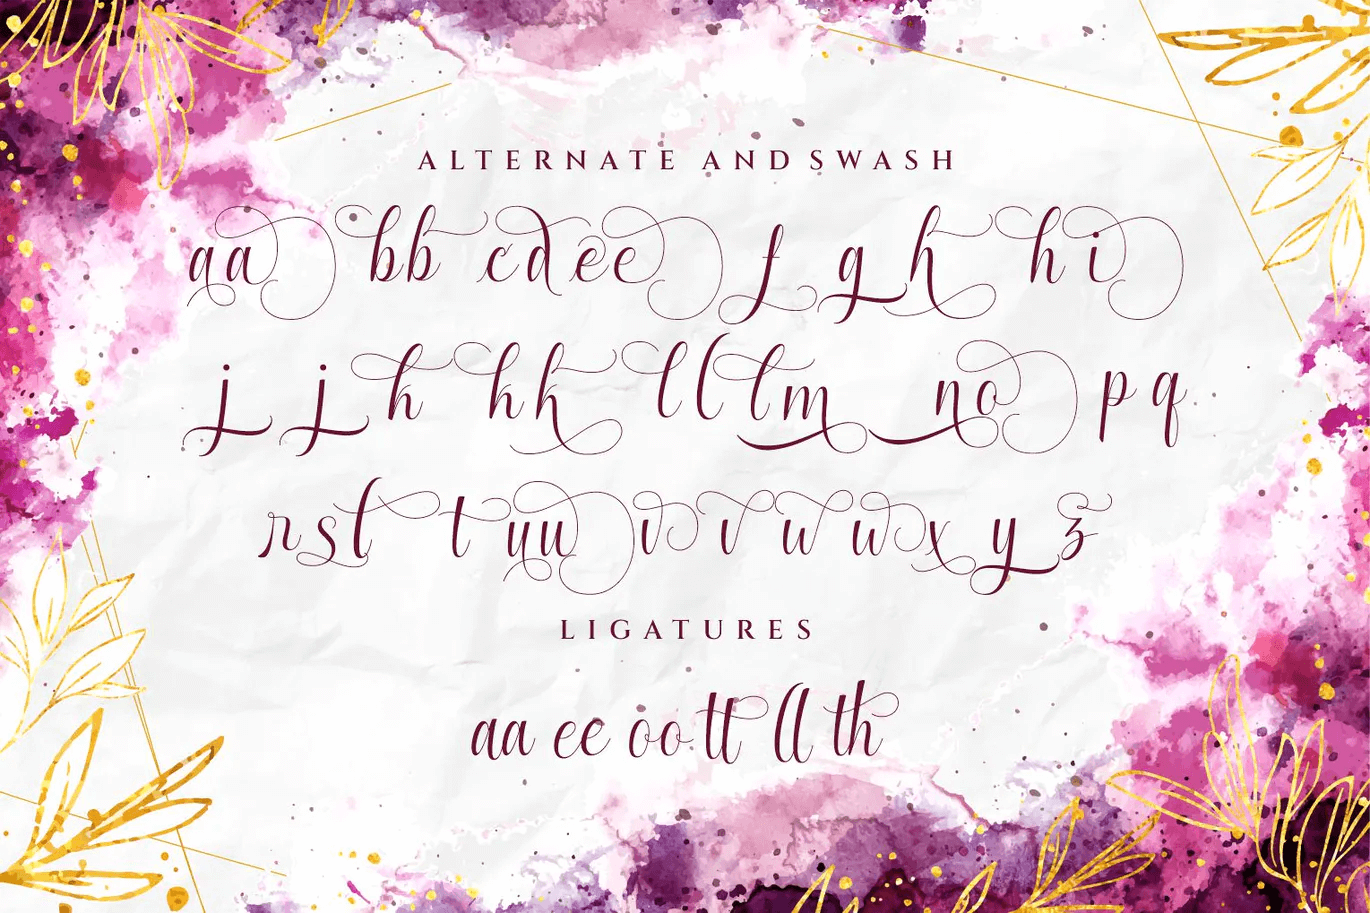 ALTERNATE AND SWASH
aa bb cd ee f g h h i
j j k k k l l l m n o p q
r s t t u u v v w w x y z
LIGATURES
aa ee oo tt ll th